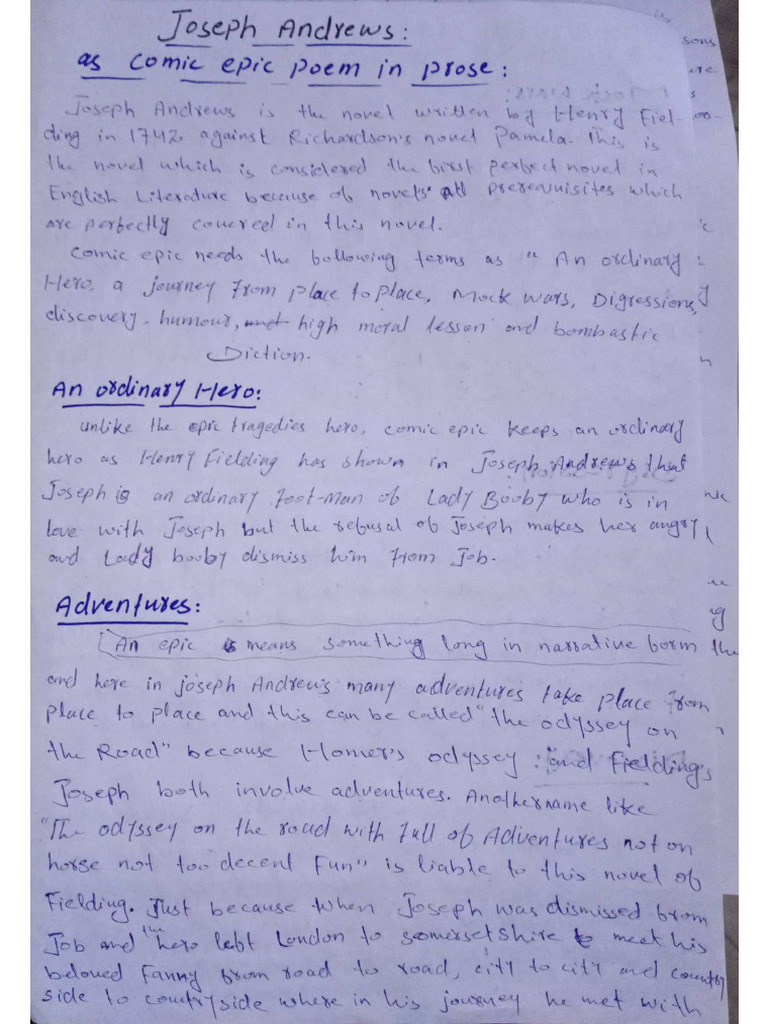 Joseph Andrews:
as comic epic poem in prose:
Joseph Andrews is the novel written by Henry Fiel-
ding in 1742 against Richardson's novel Pamela. This is
the novel which is considered the first perfect novel in
English Literature because of novels' all prerequisites which
are perfectly covered in this novel.
Comic epic needs the following terms as "An ordinary
Hero, a journey from place to place, Mock wars, Digressions,
discovery, humour, high moral lesson and bombastic
Diction.
An ordinary Hero:
unlike the epic tragedies hero, comic epic keeps an ordinary
hero as Henry Fielding has shown in Joseph Andrews that
Joseph is an ordinary foot-man of Lady Booby who is in
love with Joseph but the refusal of Joseph makes her angry
and Lady booby dismiss him from Job.
Adventures:
An epic is means something long in narrative form
and here in joseph Andrew's many adventures take place from
place to place and this can be called "the odyssey on
the Road" because Homer's odyssey and Fielding's
Joseph both involve adventures. Another name like
"The odyssey on the road with full of Adventures not on
horse not too decent Fun" is liable to this novel of
Fielding. Just because when Joseph was dismissed from
Job and the hero left London to somersetshire to meet his
beloved Fanny from road to road, city to city and country
side to countryside where in his journey he met with